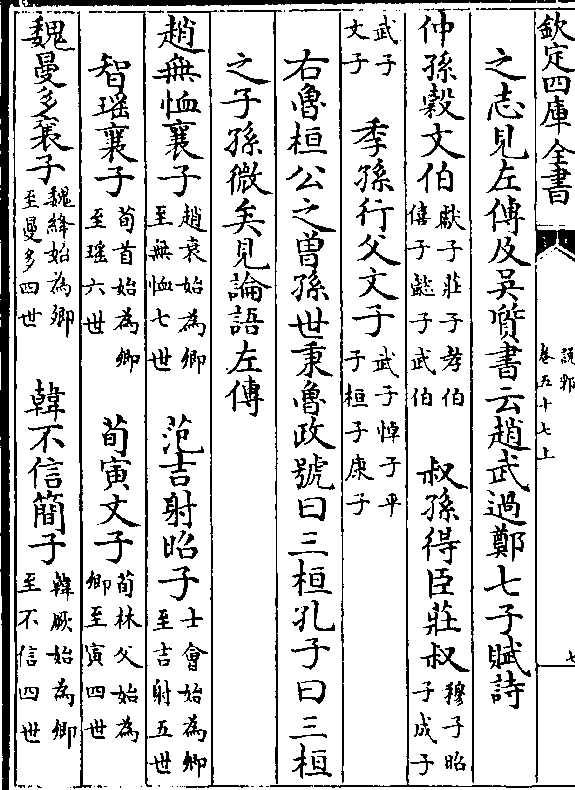 欽定四庫全書
說郛
卷五十七上
七
之志見左傳及吳質書云趙武過鄭七子賦詩
仲孫穀文伯 獻子莊子孝伯 僖子懿子武伯 叔孫得臣莊叔 穆子昭 子成子
武子 文子 季孫行父文子 武子悼子平 子桓子康子
右魯桓公之曾孫世秉魯政號曰三桓孔子曰三桓
之子孫微矣見論語左傳
趙無恤襄子 趙衰始為卿 至無恤七世 范吉射昭子 士會始為卿 至吉射五世
智瑤襄子 荀首始為卿 至瑤六世 荀寅文子 荀林父始為 卿至寅四世
魏曼多襄子 魏絳始為卿 至曼多四世 韓不信簡子 韓厥始為卿 至不信四世